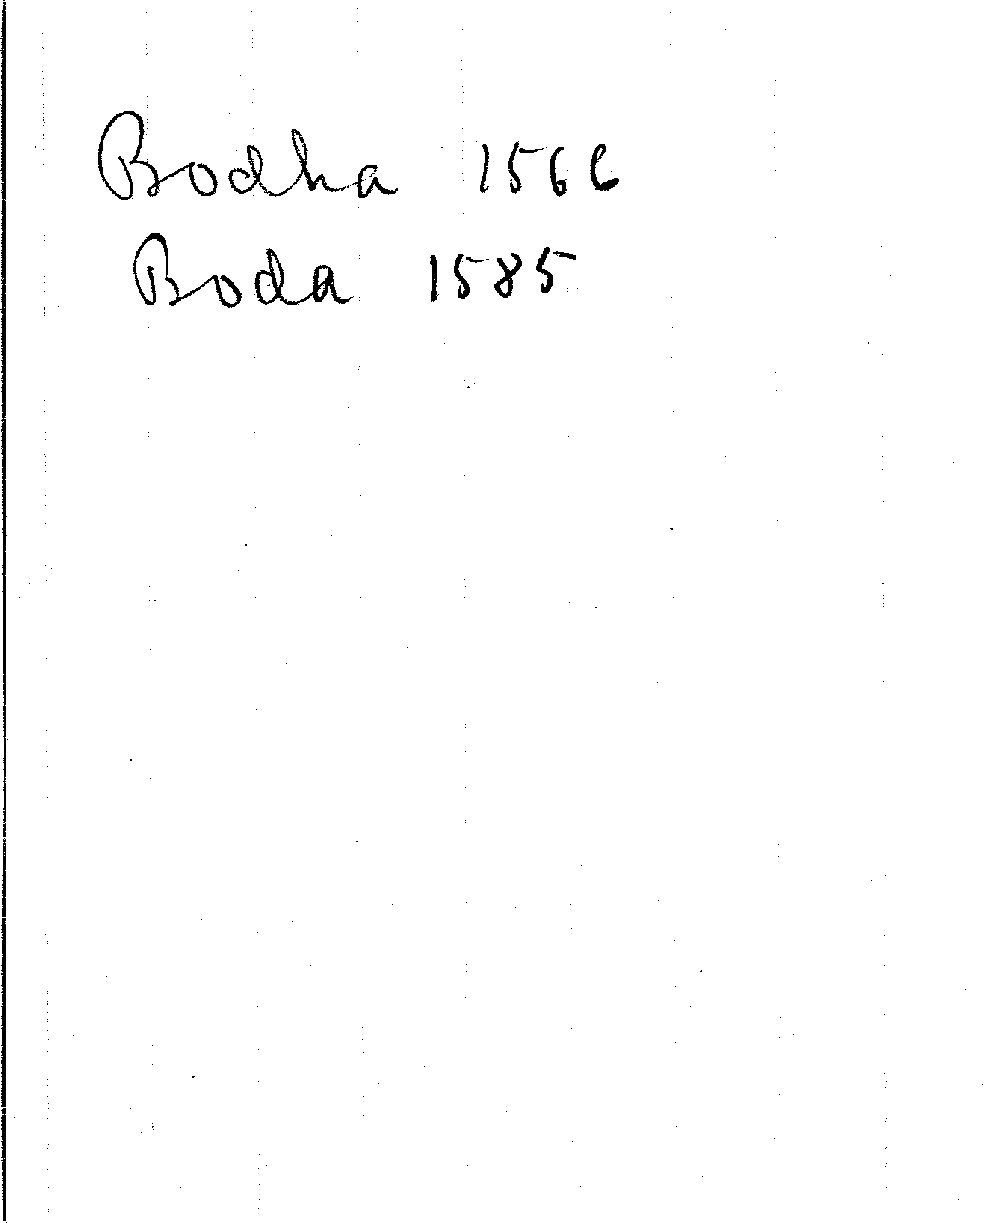 Bodha 1566
Boda 1585